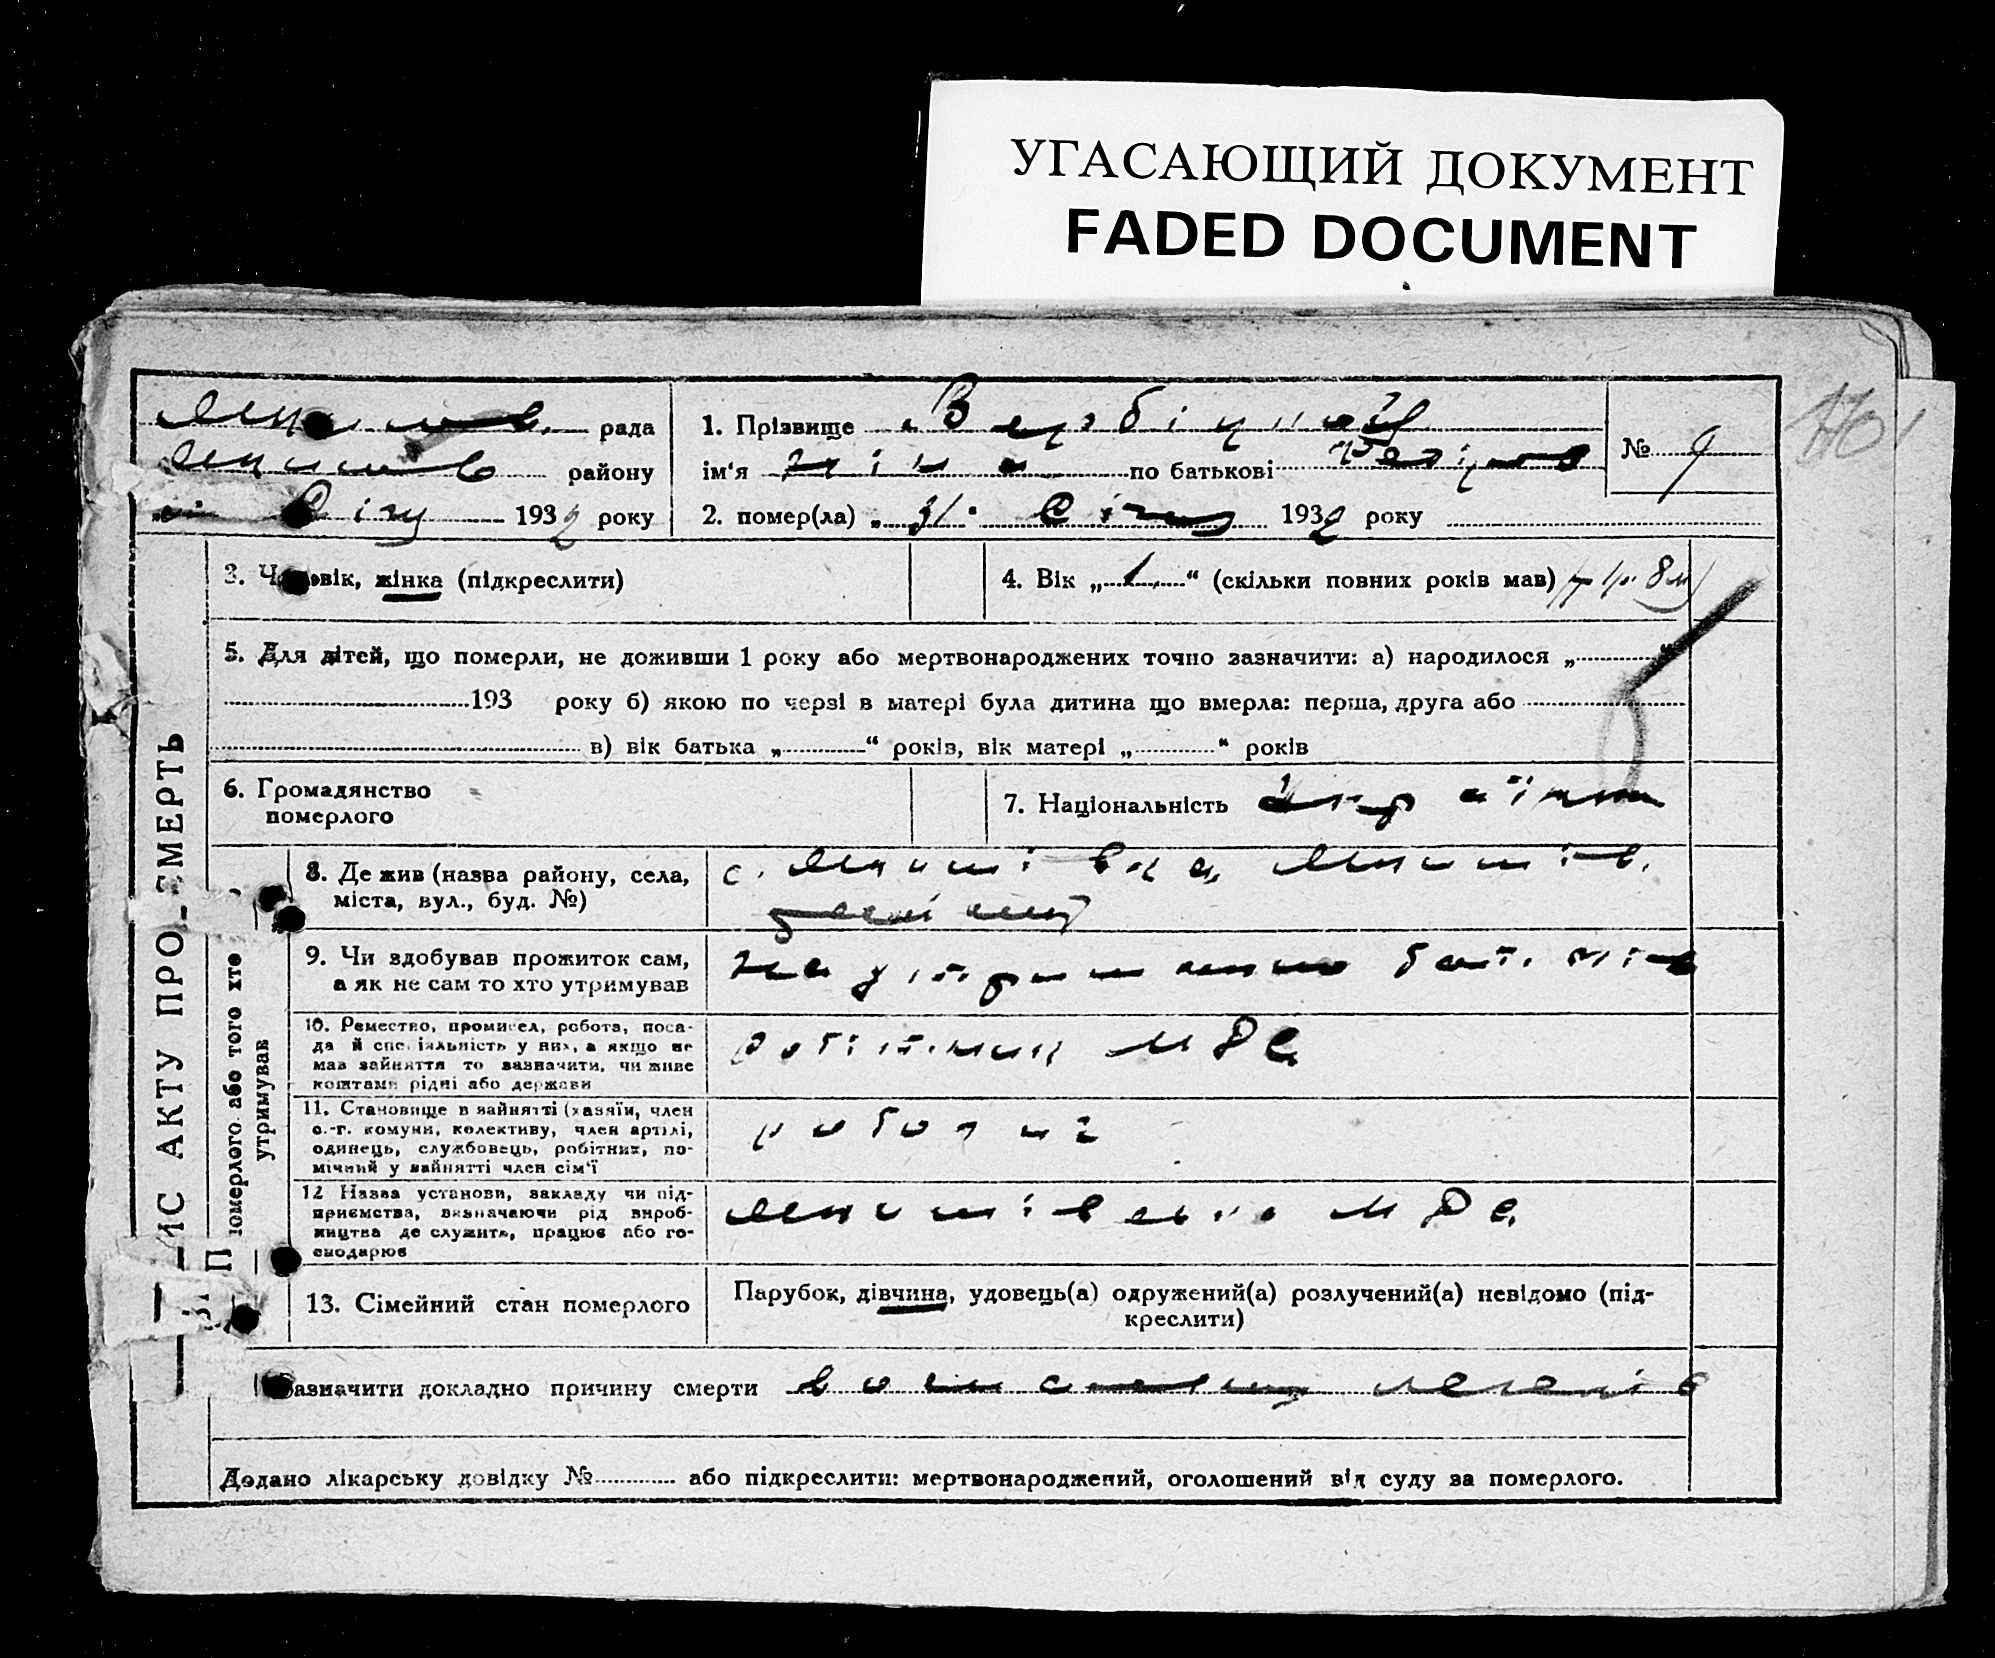 УГАСАЮЩИЙ ДОКУМЕНТ
FADED DOCUMENT
рада
району
Січ 1932 року
1. Прізвище Вербіцкой
ім'я Ніна по батькові
2. помер(ла) „ 31 . Січ 1932 року
№ 9
3. Чоловік, жінка (підкреслити)
4. Вік „ 1 “ (скільки повних років мав) 1 р. 8 м)
5. Для дітей, що померли, не доживши 1 року або мертвонароджених точно зазначити: а) народилося „ “
193 року б) якою по черзі в матері була дитина що вмерла: перша, друга або
в) вік батька „ “ років, вік матері „ “ років
6. Громадянство
померлого
7. Національність Україн
8. Де жив (назва району, села,
міста, вул., буд. №)
с.
9. Чи здобував прожиток сам,
а як не сам то хто утримував
На утриманню батьків
10. Ремество, промисел, робота, поса-
да й спеціяльність у них, а якщо не
мав зайняття то зазначити, чи живе
коштами рідні або держави
робітник МРС
11. Становище в зайнятті (хазяїн, член
с.-г. комуни, колективу, член артілі,
одинець, службовець, робітник, по-
мічний у зайнятті член сім'ї
робочий
12 Назва установи, закладу чи під-
приємства, визначаючи рід вироб-
ництва де служить, працює або го-
сподарює
МРС
13. Сімейний стан померлого
Парубок, дівчина, удовець(а) одружений(а) розлучений(а) невідомо (під-
креслити)
Зазначити докладно причину смерти легенів
Додано лікарську довідку № або підкреслити: мертвонароджений, оголошений від суду за померлого.
ИС АКТУ ПРО СМЕРТЬ
померлого або того хто
утримував